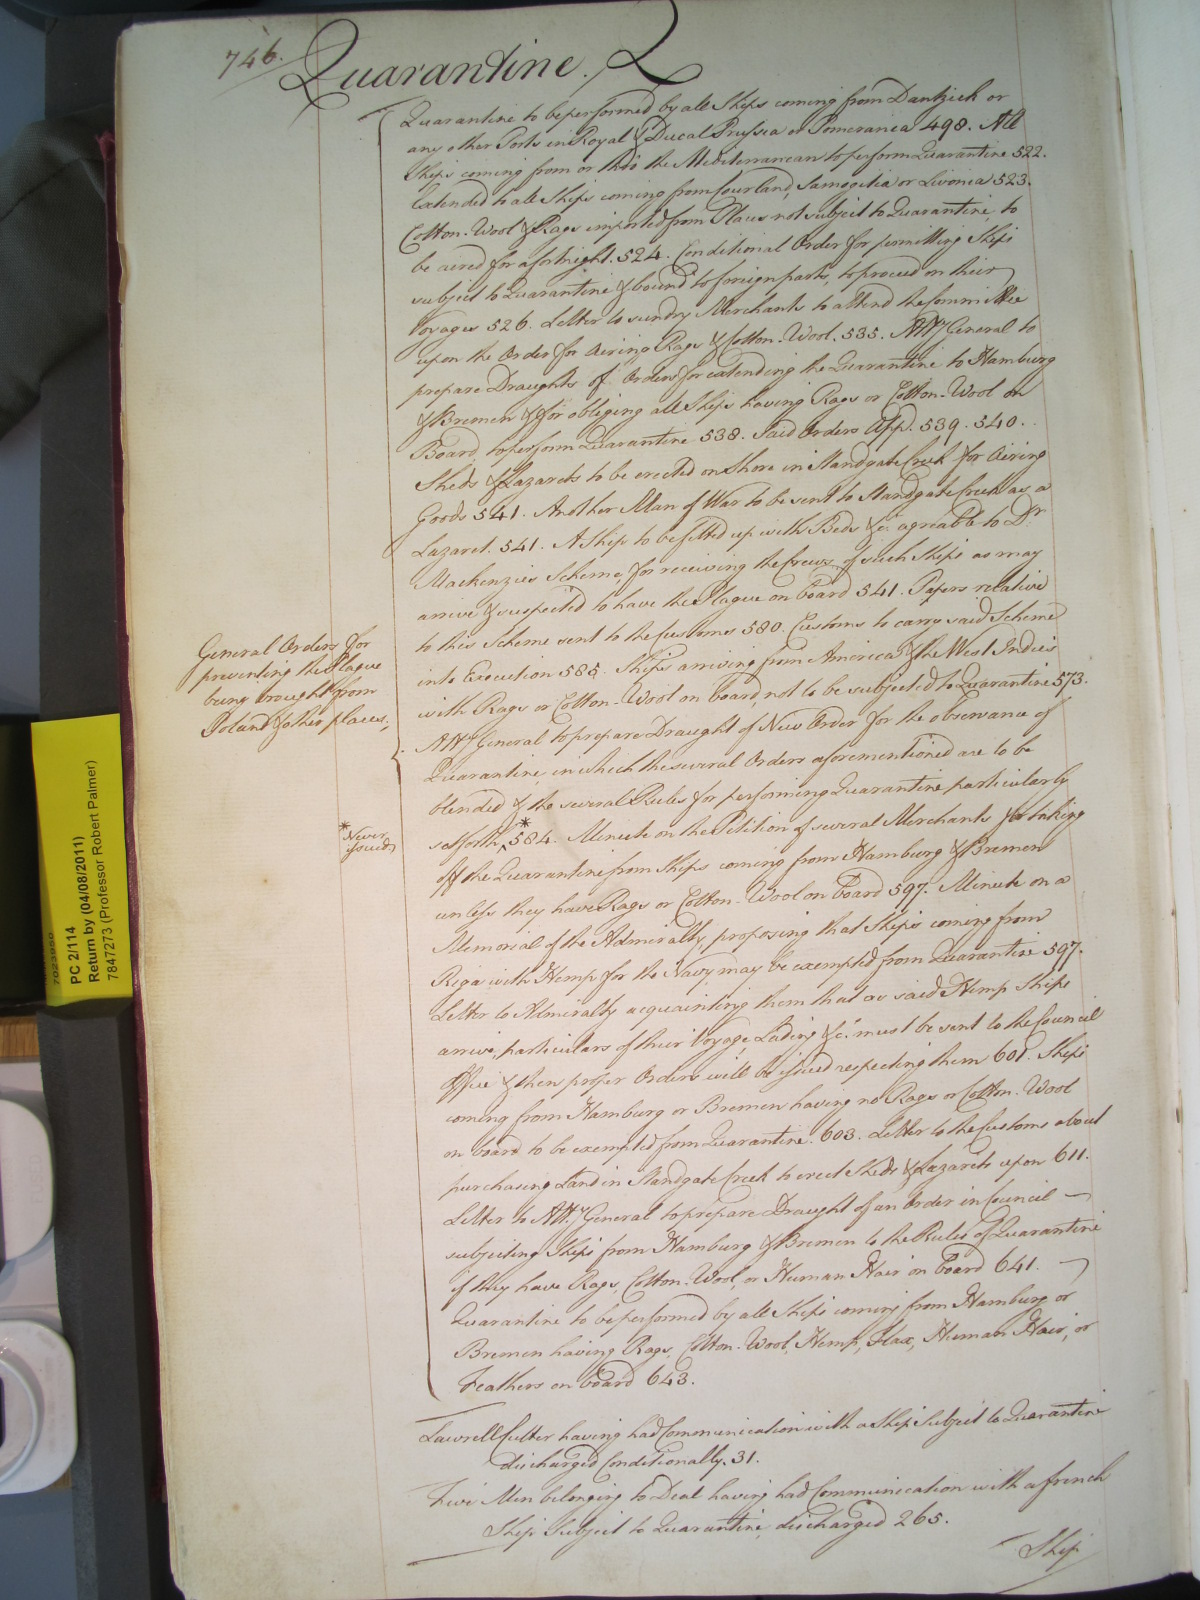 746.
Quarantine. Q
Quarantine to be performed by all Ships coming from Dantzick or
any other Ports in Royal & Ducal Prussia or Pomerania 498. All
Ships coming from or thro the Mediterranean to perform Quarantine 522.
Extended to all Ships coming from Courland, Samogitia or Livonia 523.
Cotton-Wool & Rags imported from Places not subject to Quarantine, to
be aired for a fortnight. 524. Conditional Order for permitting Ships
subject to Quarantine & bound to foreign parts, to proceed on their
Voyages 526. Letter to sundry Merchants to attend the Committee
upon the Order for Airing Rags & Cotton-Wool. 535. Atty General to
prepare Draughts of Orders for extending the Quarantine to Hamburg
& Bremen & for obliging all Ships having Rags or Cotton-Wool on
Board, to perform Quarantine 538. Said Orders App. 539. 540.
Sheds & Lazarets to be erected on Shore in Standgate Creek for Airing
Goods 541. Another Man of War to be sent to Standgate Creek as a
Lazaret. 541. A Ship to be fitted up with Beds &c. agreable to Dr.
Mackenzies Scheme, for receiving the Crews of such Ships as may
arrive & suspected to have the Plague on board 541. Papers relative
to this Scheme sent to the Customs 580. Customs to carry said Scheme
into Execution 585. Ships arriving from America & the West Indies
with Rags or Cotton-Wool on board, not to be subjected to Quarantine 573.
General Orders for
preventing the Plague
being brought from
Poland & other places.
Atty General to prepare Draught of New Order for the observance of
Quarantine, in which the several Orders aforementioned are to be
blended & the several Rules for performing Quarantine particularly
* Never
issued
set forth, ^ * 584. Minute on the Petition of several Merchants for taking
off the Quarantine from Ships coming from Hamburg & Bremen
unless they have Rags or Cotton-Wool on board 597. Minute on a
Memorial of the Admiralty, proposing that Ships coming from
Riga with Hemp for the Navy may be exempted from Quarantine 597.
Letter to Admiralty acquainting them that as said Hemp Ships
arrive, particulars of their Voyage, Lading &c. must be sent to the Council
Office & then proper Orders will be issued respecting them 601. Ships
coming from Hamburg or Bremen having no Rags or Cotton-Wool
on board to be exempted from Quarantine. 603. Letter to the Customs about
purchasing Land in Standgate Creek to erect Sheds & Lazarets upon 611.
Letter to Atty General to prepare Draught of an Order in Council
subjecting Ships from Hamburg & Bremen to the Rules of Quarantine
if they have Rags, Cotton-Wool, or Human Hair on board 641.
Quarantine to be performed by all Ships coming from Hamburg or
Bremen having Rags, Cotton-Wool, Hemp, Flax, Human Hair, or
Feathers on board 643.
Lawrell Cutter having had Communication with a Ship Subject to Quarantine
discharged Conditionally. 31.
Five Men belonging to Deal having had Communication with a french
Ship Subject to Quarantine, discharged 265.
Ship
7023950
PC 2/114
Return by (04/08/2011)
7847273 (Professor Robert Palmer)